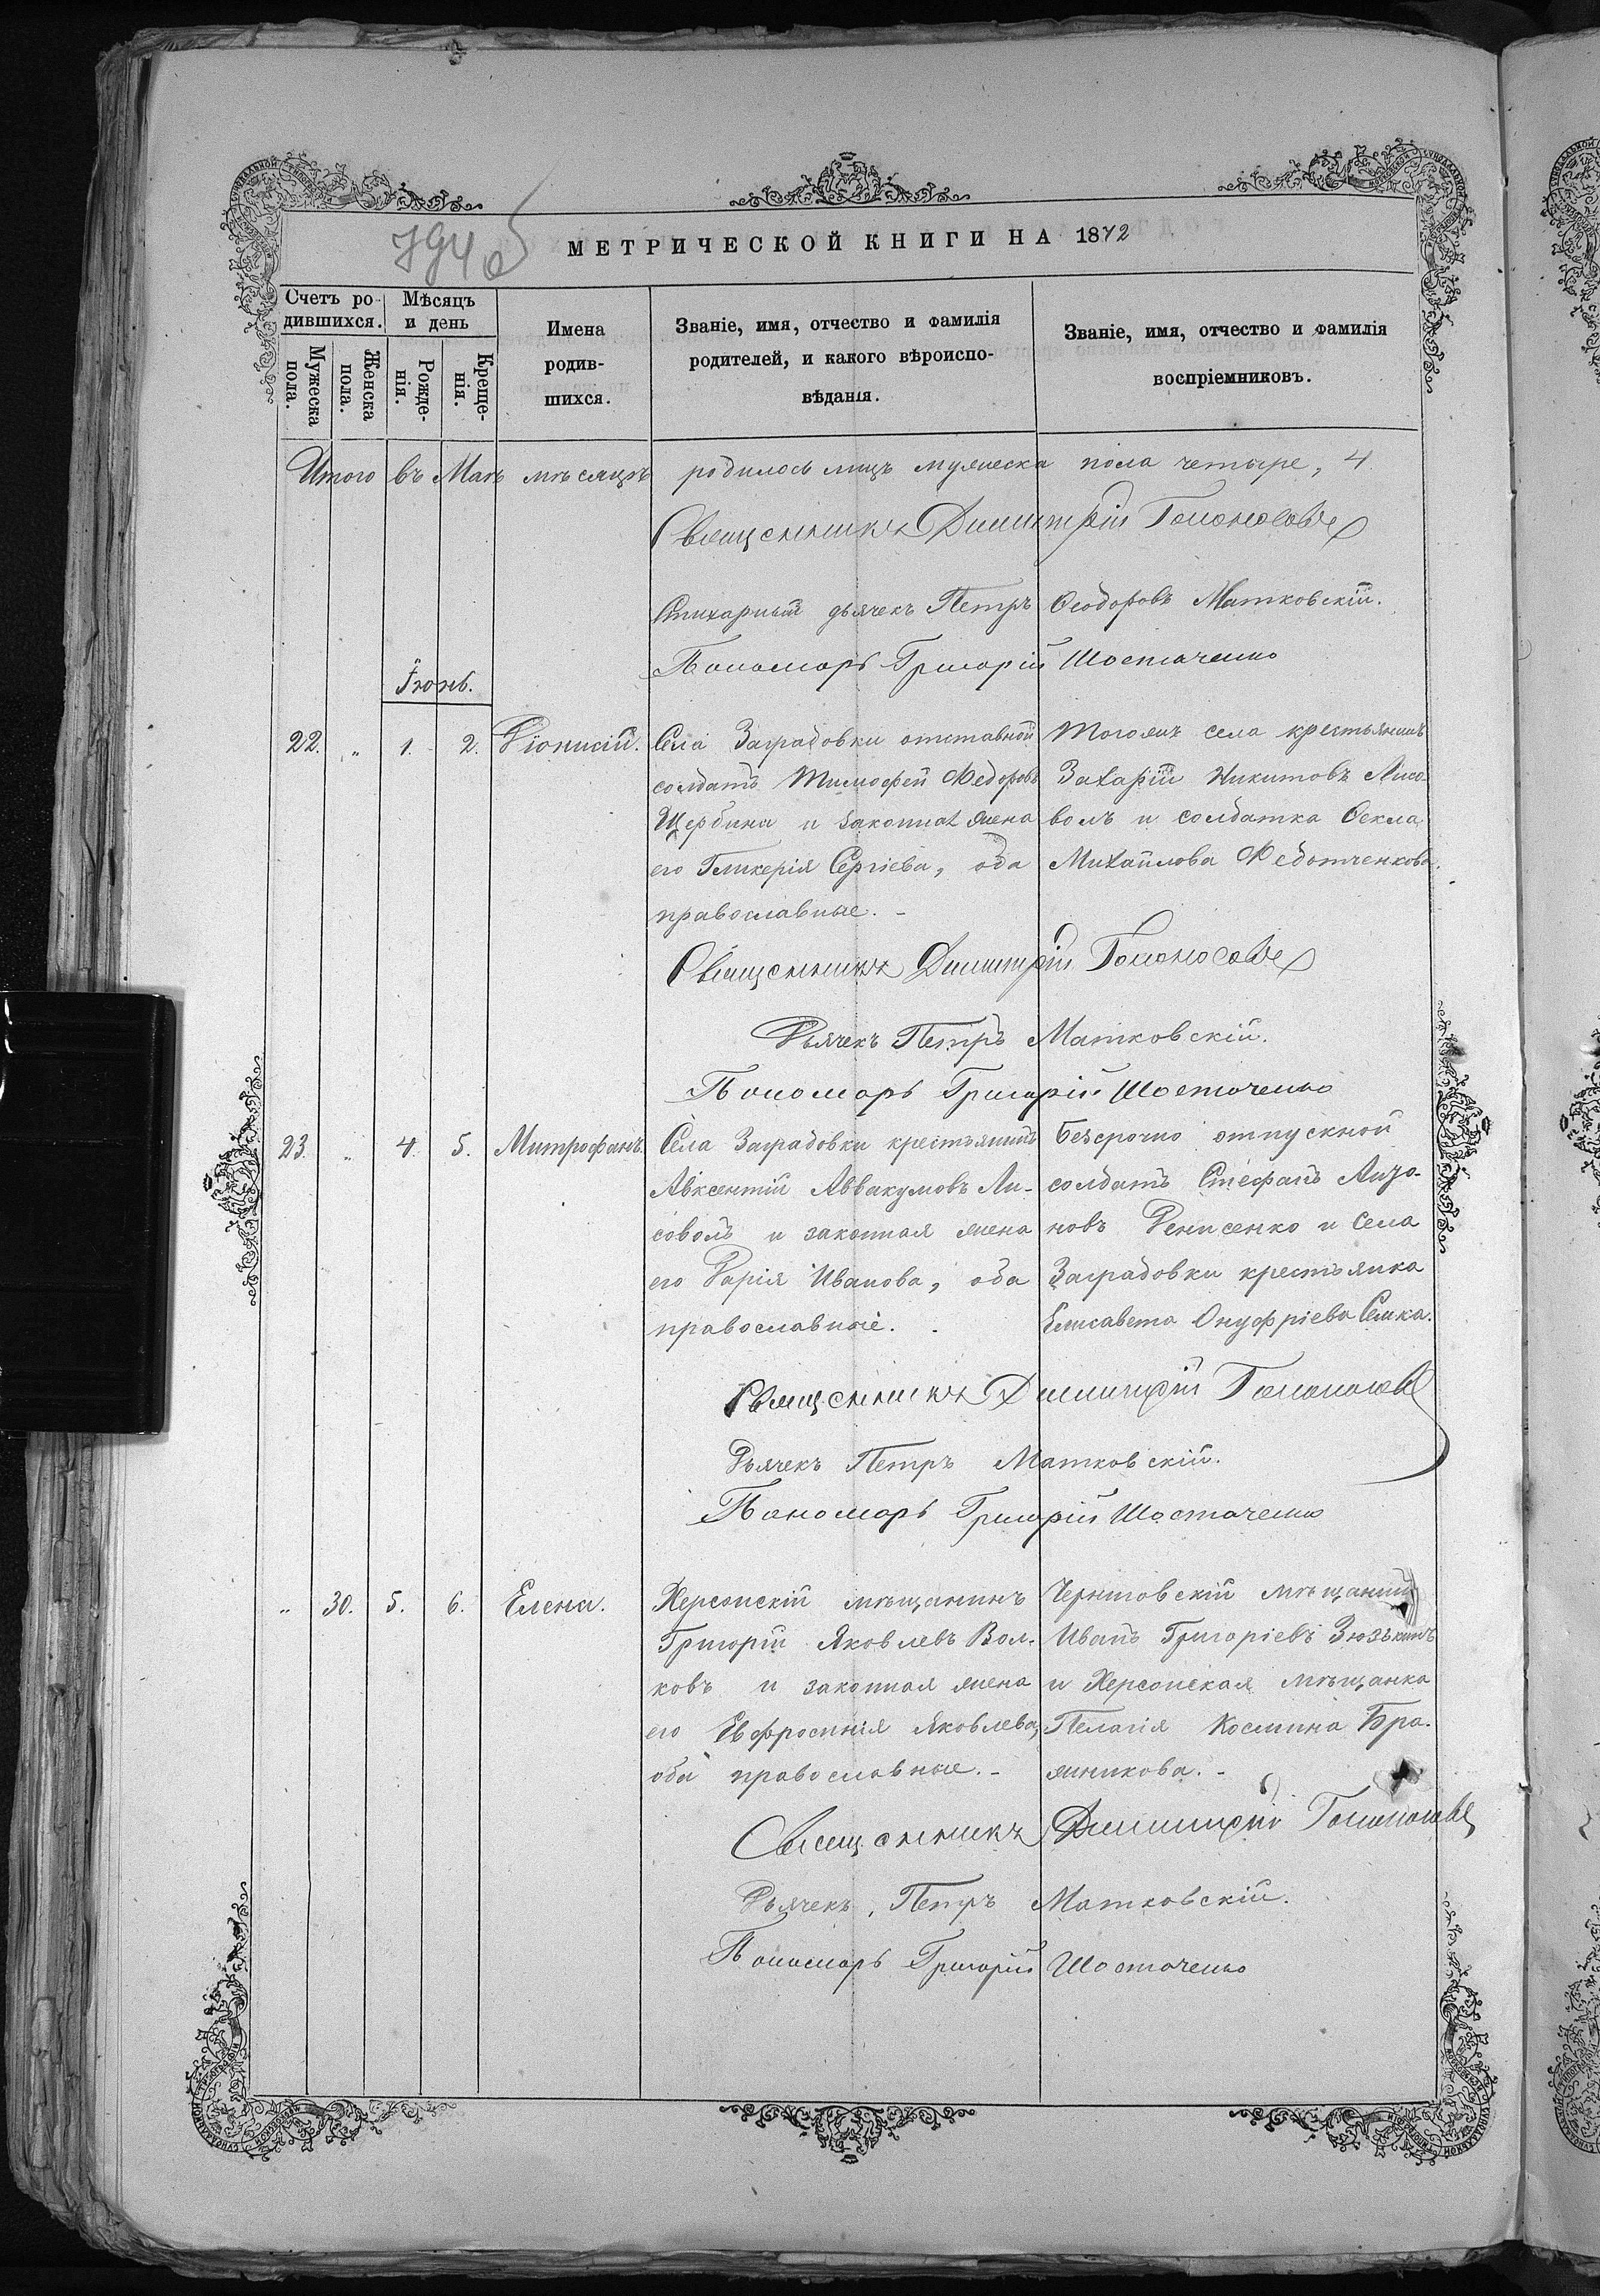 794 об
МЕТРИЧЕСКОЙ КНИГИ НА 1872
Счетъ ро-
дившихся.
Мѣсяцъ
и день
Мужеска
пола.
Женска
пола.
Рожде-
нія.
Креще-
нія.
Имена
родив-
шихся.
Званіе, имя, отчество и фамилія
родителей, и какого вѣроиспо-
вѣданія.
Званіе, имя, отчество и фамилія
воспріемниковъ.
Итого въ Маѣ мѣсяцѣ родилось лицъ мужеска пола четыре, 4
Священникъ Димитрій
Стихарный дьячекъ Петръ Ѳеодоровъ Матковскій.
Пономарь Григорій Шостаченко
Іюнь.
22. „ 1. 2. Діонисій.
Села Заградовки отставной
солдатъ Тимофей Федоровъ
Щербина и законная жена
его Гликерія Сергіева, оба
православные. -
Тогожъ села крестьянинъ
Захарій Никитовъ Лисо-
волъ и солдатка Ѳекла
Михайлова Федотченкова.
Священникъ Димитрій
Дьячекъ Петръ Матковскій.
Пономарь Григорій Шостаченко
23. „ 4. 5. Митрофанъ.
Села Заградовки крестьянинъ
Авксентій Аввакумовъ Ли-
соволъ и законная жена
его Дарія Иванова, оба
православные.
Безсрочно отпускной
солдатъ Стефанъ
новъ Денисенко и села
Заградовки крестьянка
Елисавета Онуфріева
Священникъ Димитрій
Дьячекъ Петръ Матковскій.
Пономарь Григорій Шостаченко
„ 30. 5. 6. Елена.
Херсонскій мѣщанинъ
Григорій Яковлевъ Вол-
ковъ и законная жена
его Евфросинія Яковлева,
оба православные. -
Черниговскій мѣщанинъ
Иванъ Григоріевъ Зюзькинъ
и Херсонская мѣщанка
Пелагія Космина Бра-
жникова. -
Священникъ Димитрій
Дьячекъ, Петръ Матковскій.
Пономарь Григорій Шостаченко